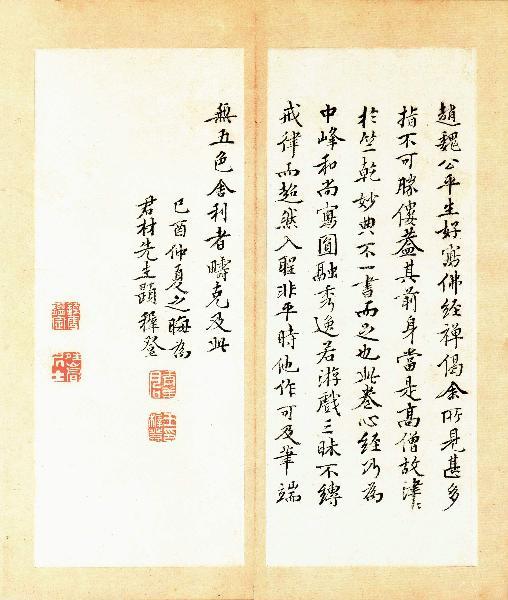 趙魏公平生好寫佛經禪偈余所見甚多
指不可勝僂蓋其前身當是高僧故津〻
於竺乾妙典不一書而足也此卷心經乃為
中峰和尚寫圓融秀逸若游戲三昧不縛
戒律而超然入聖非平時他作可及筆端
無五色舍利者疇克及此
己酉仲夏之晦為
君材先生題 穉登